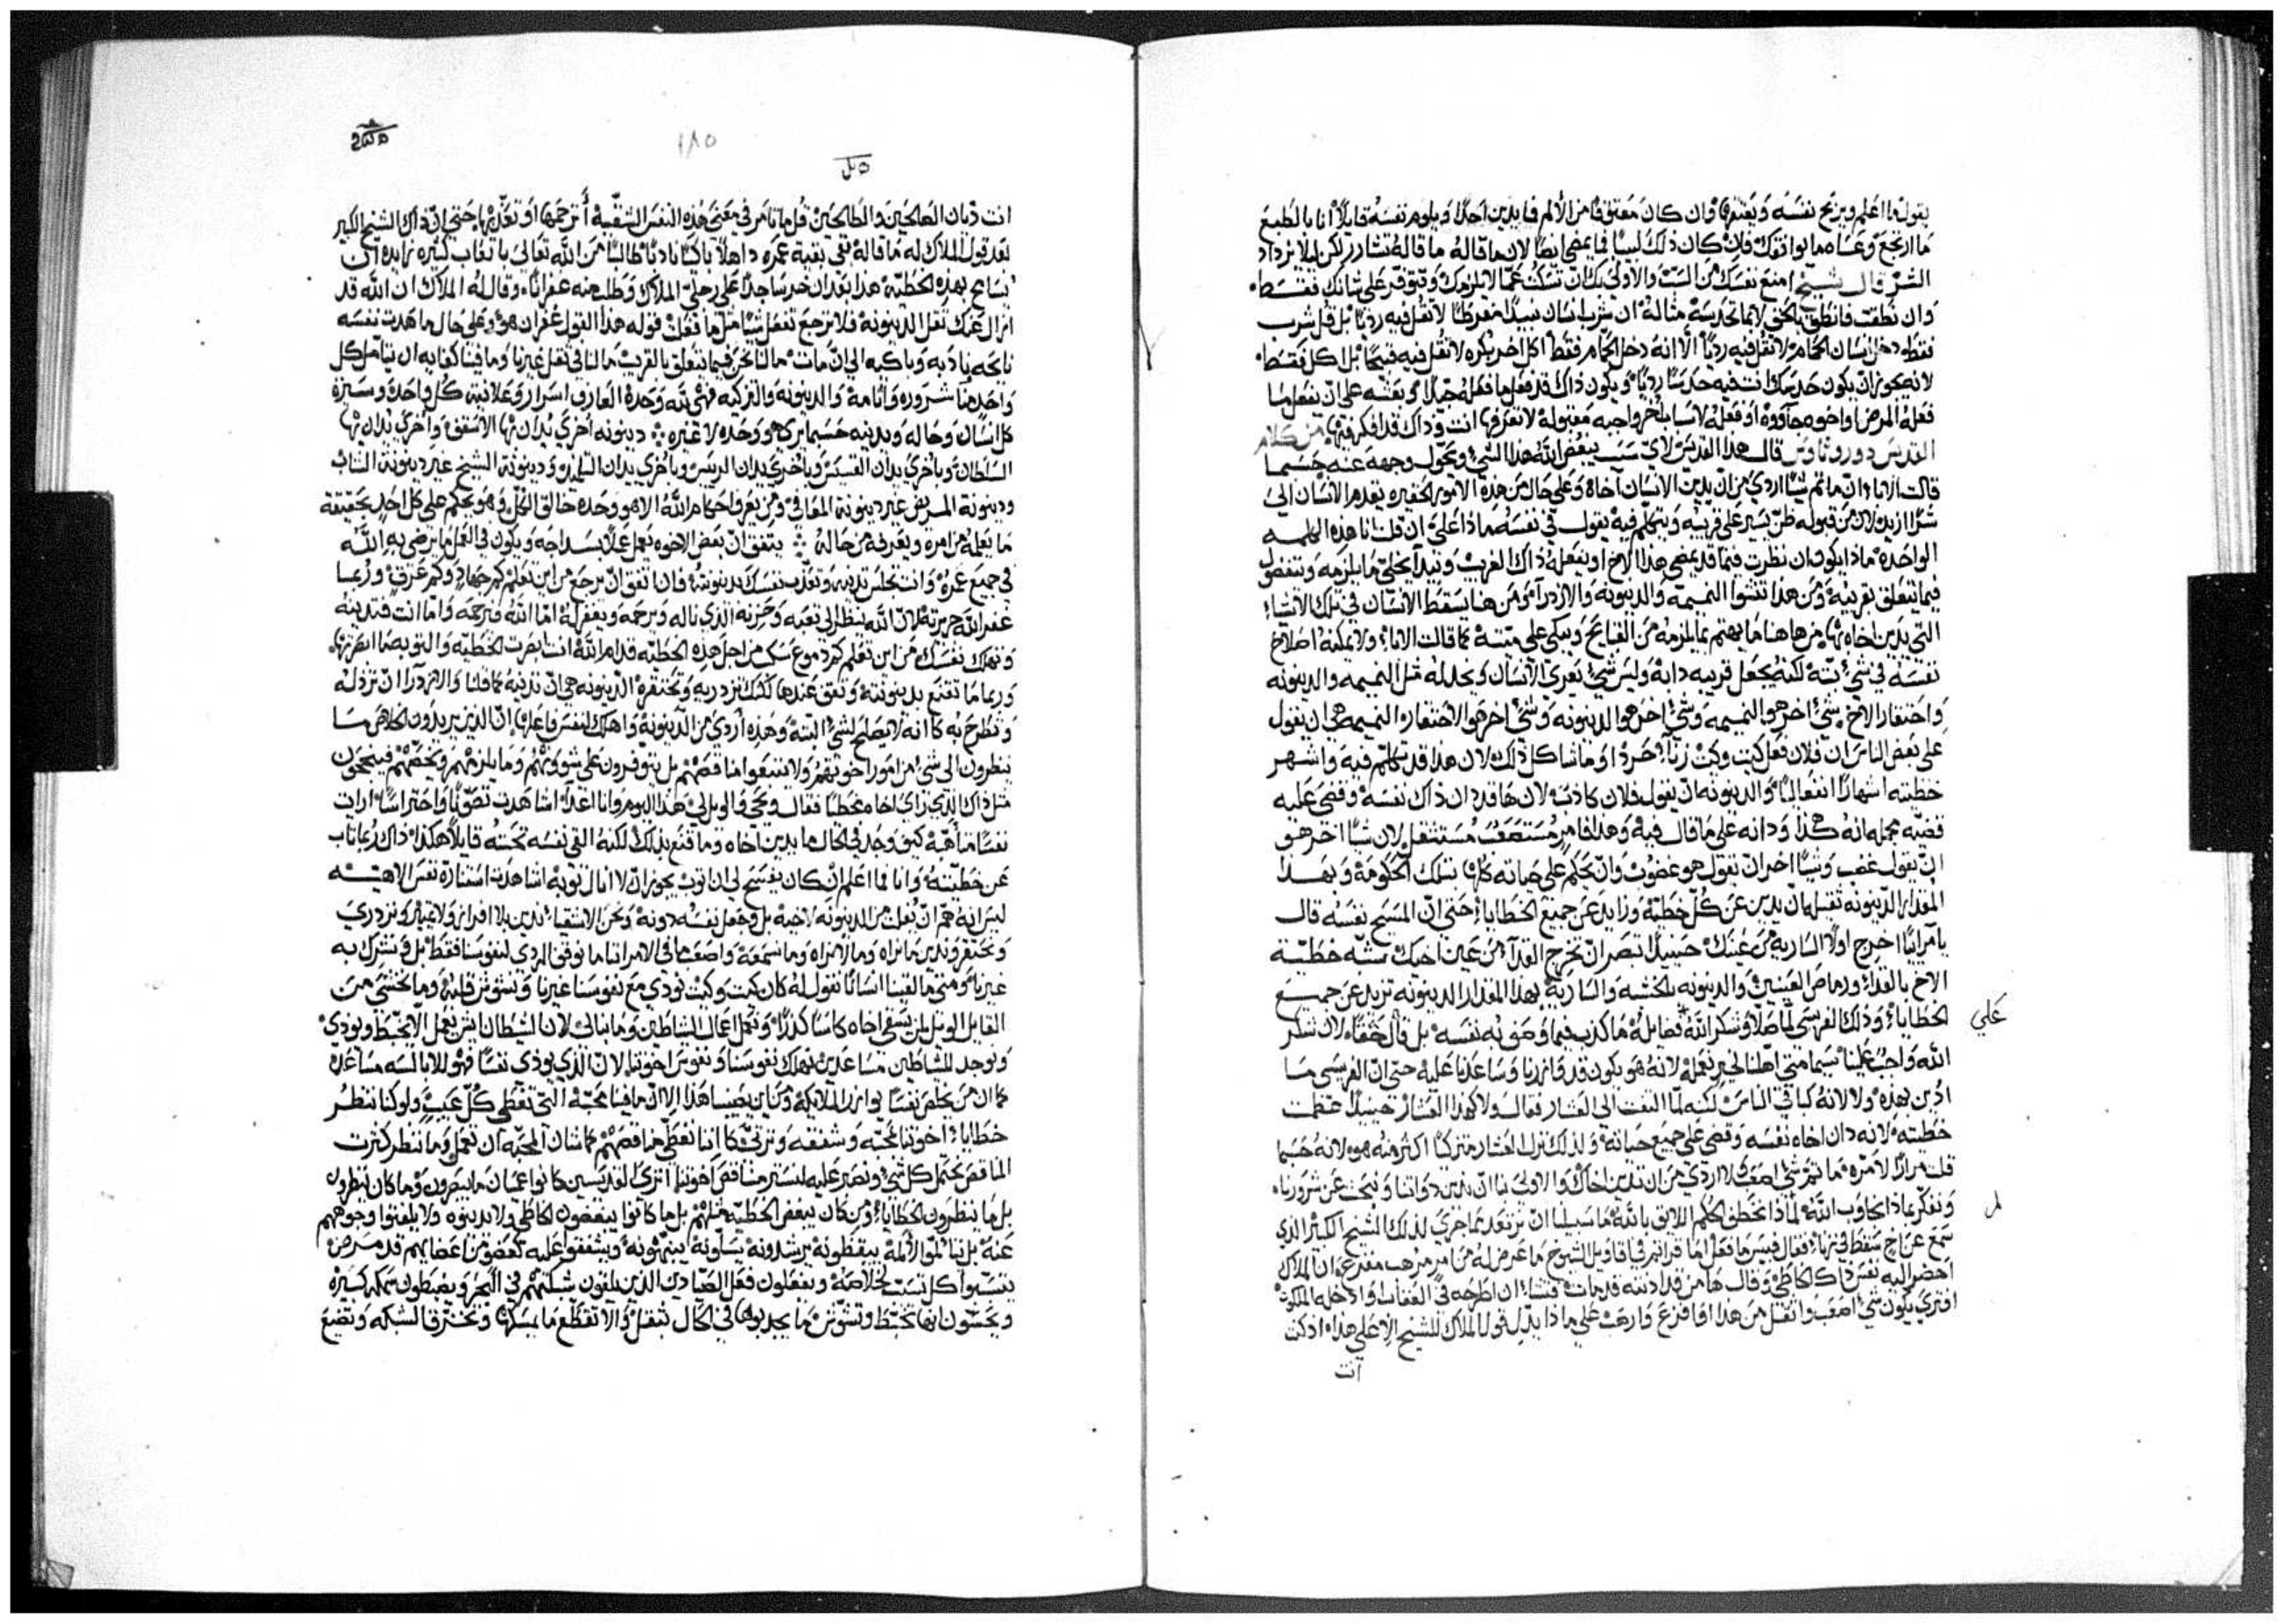 يقول ما اعلم ويربح نفسه ويعتقها وان كان معتوق فامن الالم فما يدين احدًا ويلوم نفسه قايلاً انا بالطبع
ما ارتجع وعساه ما يوافقك فلان كان ذلك ليسًا فما يمضي ايضًا لان ما قاله ما قاله تشارر لكن ليلا يزداد
الشر قال شيخ امنع نفسك من السبّ والاولى بك ان تسكت عمّا لا يلزمك وتتوفر على شانك فقط
وان نطقت فانطق بالحق لا بما تحدسه مثاله ان شرب انسان نبيدًا مفرطًا لا تقل فيه رديًا بل قل شرب
فقط دخل انسان الحمام لا تقل فيه رديًا الا انه دخل الحمام فقط اكل اخر بكره لا تقل فيه قبيحًا بل اكل فقط
لانه يجوز ان يكون حدسك انت فيه حدسًا رديًا ويكون ذاك قد فعل ما فعله جيدًا
فعله لمرض او اخوه او فعله لاسباب اخر واجبه مقبوله لا تعرفها انت وذاك قد افكر فيها من كلام
القديس دوروثاوس قال هذا القديس لاي سبب يبغض الله هذا الشي ويحوّل وجهه عنه حسبما
قالت الابا ان ما ثم شيًا اردي من ان يدين الانسان اخاه وعلى حال من هذه الامور الحقيره يتقدم الانسان الى
شر ازيد لان من قبوله ظن يسير على قريبه ويتكلم فيه يقول في نفسه ماذا عليّ ان قلت انا هذه الكلمه
الواحده ماذا يكون ان نظرت فيما قد يمضي هذا الاخ او يفعله ذاك الغريب ونبدا نخلي ما يلزمه وتتفضل
فيما يتعلق بقريبه ومن هذا تنشوا النميمه والدينونه والازدرآ ومن هنا يسقط الانسان في تلك الاشيا
التي يدين اخاه بها من هاهنا ما يهتم بما يلزمه من القبايح ويبكي على ميته كما قالت الابا ولا يمكنه اصلاح
نفسه في شيٍ بته لكنه يجعل قريبه دابه وليس شي يعري الانسان ويخذله مثل النميمه والدينونه
واحتقار الاخ شيٌ اخر هو النميمه وشي اخر هو الدينونه وشيٌ اخر هو الاحتقار النميمه هي ان يقول
على بعض الناس ان فلان فعل كيت وكيت زنا حرد او ما شاكل ذلك لان هذا قد تكلّم فيه واشهر
خطيته اشهارًا انفعاليًا والدينونه ان يقول فلان كاذب لان ها قد دان ذاك نفسه وقضى عليه
قضيّه مجمله انه هكذا ودانه على ما قال فيه وهذا فامر مستصعب مستثقل لان شيًا اخر هو
ان يقول غضب وشيًا اخر ان يقول هو غضوب وان يحكم على حياته كلها بتلك الحكومة وبهذا
المقدار الدينونه ثقيله ان يدين عن كل خطيّة وزايد عن جميع الخطايا حتى انّ المسيح نفسه قال
يا مراييًا اخرج اولًا السارية من عينك حينيذٍ تبصر ان تخرج القذا من عين اخيك شبّه خطيّة
الاخ بالقذا والدينونه بالخشبه والسارية بهذا المقدار الدينونه تزيد عن جميع
الخطايا وذلك الفريسي لما صلا وشكر الله على فضايله ما كذب فيما وصفوبه نفسه بل قال حقًا لان شكر
الله واجب علينا سيما متى اهلنا لخير نعمله لانه هو يكون قد وازرنا وساعدنا عليه حتى ان الفريسي ما
ادين بهذه ولا لانه كباقي الناس لكنه لما التفت الى العشار فقال ولا كهذا العشار حينيذٍ عظمت
خطيته لانه دان اخاه نفسه وقضى على جميع حياته ولذلك نزل العشار متزكيًا اكثر منه هو لانه حسبما
قلت مرارًا لا مره ما ثم شي اصعب ولا اردي من ان تدين اخاك والاولى بنا ان ندين ذواتنا ونبحث عن شرورنا
ونفكر بماذا نجاوب الله لماذا نخطف الحكم اللايق بالله ما سبيلنا ان نرتعد بما جرى لذلك الشيخ الكبير الذي
سمع عن اخٍ سقط في زنا فقال فبيس ما فعل اما قراتم في اقاويل الشيوخ ما عرض له من امر مرهب مفزع ان الملاك
احضر اليه نفس ذاك الخاطي وقال ها من قد ادنته قد مات فتشا ان اطرحه في العقاب او ادخله الملكوت
افترى يكون شي اصعب واثقل من هذا او افزع وارهب على ماذا يدل قول الملاك للشيخ الا على هذا اذ كنت
علي
انت
١٨٥
انت ديان الصالحين والطالحين قل ما تامر في معنى هذه النفس الشقيّة أترحمها او تعذّبها حتى انّ ذاك الشيخ الكبير
بعد قول الملاك له ما قاله بقي بقية عمره ذاهلًا باكيًا نادبًا طالبًا من الله تعالى باتعاب كثيره زايده ان
يسامح بهذه الخطيّة هذا بعد ان خر ساجدًا على رجلي الملاك وطلب منه غفرانًا وقال له الملاك ان الله قد
ازال عنك ثقل الدينونه فلا ترجع تفعل شيًا مثل ما فعلت قوله هذا القول غفران هو وعلى حال ما هدت نفسه
نايحه نادبه وباكيه الى ان مات ما لنا نحن فيما يتعلق بالقريب ما لنا في ثقل غيرنا وما فينا كفايه ان يتامل كل
واحدٍ منا شروره واثامه والدينونه والتزكيه فهي لله وحده العارف اسرار وعلانية كل واحد وسيرة
كل انسان وحاله ويدينه حسبما يركا هو وحده لا غيره دينونه اخرى يدان بها الاسقف واخرى يدان بها
السلطان وباخرى يدان القسيس وباخرى يدان الريس وباخرى يدان التلميذ ودينونة الشيخ غير دينونة الشاب
ودينونة المريض غير دينونة المعافى ومن يعرف احكام الله الا هو وحده خالق الكل وهو يحكم على كل احدٍ بحقيقة
ما يعلمه من امره ويعرفه من حاله يتفق ان بعض الاخوه يعمل عملًا بسداجه ويكون في العمل ما يرضي به الله
في جميع عمره وانت تجلس تدينه وتعذب نفسك بدينونته فان اتفق ان يرجع من اين تعلم كم جهاد وكم عرق وربما
غفر الله جريرته لان الله ينظر الى تعبه وحزنه الذي ناله ويرحمه ويغفر له امّا الله فيرحمه وامّا انت فتدينه
وتهلك نفسك من اين تعلم كم دموع سكب من اجل هذه الخطيّه قدام الله انت ابصرت الخطيّه والتوبه ما ابصرتها
وربما ما تقنع بدينونته وتقف عندها لكنك تزدريه وتحتقره الدينونه هي ان تدينه كما قلنا والازدرآ ان ترذله
وتطرح به كانه لا يصلح لشيٍ البتّه وهذه اردي من الدينونه واهلاك لنفس فاعلها ان الذين يريدون الخلاص ما
ينظرون الى شيٍ من امور اخوتهم ولا يتبعوا مناقصهم بل يتوفرون على شوونهم وما يلزمهم ويخصهم فينجحون
مثل ذاك الذي راى اخاه مخطيًا فقال ويحي والويل لي هذا اليوم وانا غدًا اشاهدت تصوّنًا واحتراسًا ارايت
نفسًا متاهبة كيف وجد في الحال ما يدين اخاه وما قنع بذلك لكنه القى نفسه تحته قايلًا هكذا ذاك ربما تاب
عن خطيّته وانا فما اعلم ان كان يفسح لي ان اتوب يجوز ان لا انال توبه اشاهدت استنارة نفس الاهيّه
ليس انه همّ ان يفلت من الدينونه لاخيه بل وجعل نفسه دونه ونحن الاشقيا ندين بلا افراز ولا تمييز ونزدري
ونحتقر وندين ما نراه وما لا نراه وما نسمعه واصعب ما في الامر اننا ما نوقف الردي لنفوسنا فقط بل ونشرك به
غيرنا ومتى ما لقينا انسانًا نقول له كان كيت وكيت نوذي مع نفوسنا غيرنا ونشوش قلبه وما نخشى من
القايل الويل لمن يسقي اخاه كاسًا كدرًا ونعمل اعمال الشياطين وما نبالي لان الشيطان ايش يعمل الا يخبط ويوذي
ونوجد للشياطين مساعدين بهلاك نفوسنا ونفوس اخوتنا لان الذي يوذي نفسًا فهو للابالسه مساعد
كما ان من يخلص نفسًا يوازر الملايكه ومن اين يصيبنا هذا الا ان ما فينا محبّه التي تغطي كل عيب ولو كنا ننظر
خطايا اخوتنا بمحبّه وشفقه وترثي كما اننا نغطي مناقصهم كما شان المحبّه ان تعمل وما ننظر كثرت
المناقص نحتمل كل شي ونصبر عليه لنستر مناقص اخوتنا اترى القديسين كانوا عميان ما يبصرون وما كان ينظرون
بل ما ينظرون الخطايا ومن كان يبغض الخطيّه مثلهم بل ما كانوا يبغضون الخاطي ولا يدينوه ولا يلفتوا وجوههم
عنه بل يتالموا لالمه يعظونه يرشدونه يسلونه ويشفقوا عليه كعضو من اعضايهم قد مرض
يعملوا كل سبب لخلاصه ويفعلون فعل الصيادين الذين يلقون شبكتهم في البحر ويضبطون سمكه كبيره
ويحسون انها تختبط وتشوش ما يجدبوها في الحال بثقل والا تقطع ما يمسكها وتخترق الشبكه وتضيع